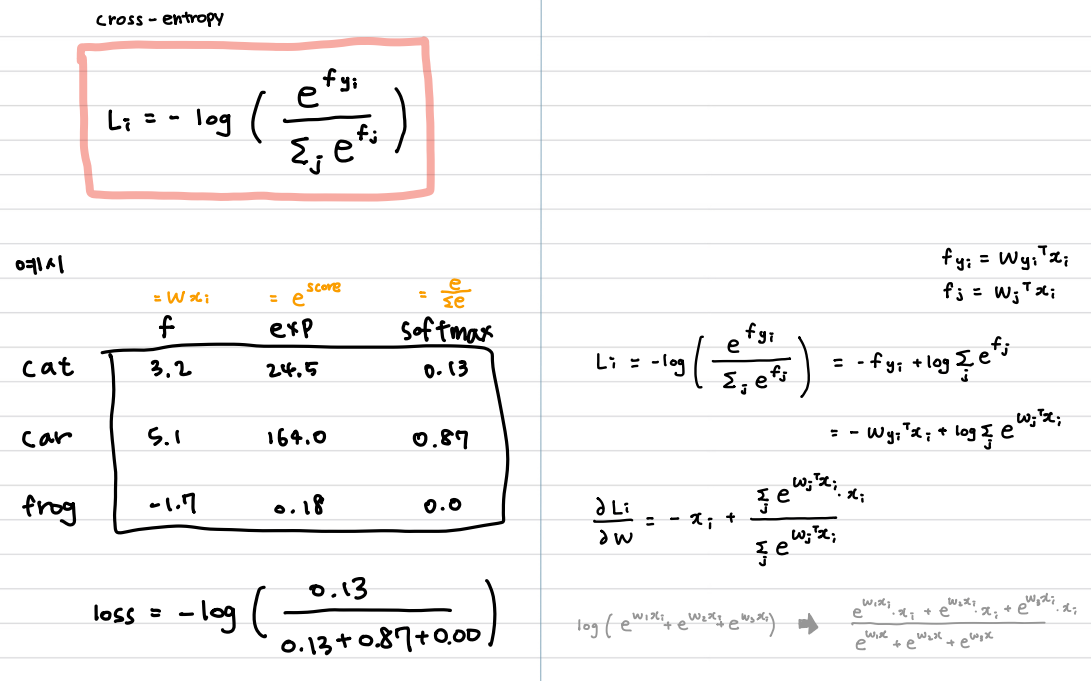 cross-entropy
Lᵢ = - log ( e^{f_{yᵢ}} / Σⱼ e^{fⱼ} )
예시
= W xᵢ = e^{score} = e / Σe
f exp softmax
cat 3.2 24.5 0.13
car 5.1 164.0 0.87
frog -1.7 0.18 0.0
loss = -log ( 0.13 / 0.13+0.87+0.00 )
f_{yᵢ} = W_{yᵢ}ᵀxᵢ
fⱼ = Wⱼᵀxᵢ
Lᵢ = -log ( e^{f_{yᵢ}} / Σⱼ e^{fⱼ} ) = - f_{yᵢ} + log Σⱼ e^{fⱼ}
= - W_{yᵢ}ᵀxᵢ + log Σⱼ e^{Wⱼᵀxᵢ}
∂Lᵢ / ∂W = - xᵢ + Σⱼ e^{Wⱼᵀxᵢ}·xᵢ / Σⱼ e^{Wⱼᵀxᵢ}
log ( e^{W₁xᵢ} + e^{W₂xᵢ} + e^{W₃xᵢ} ) ➡ e^{W₁xᵢ}·xᵢ + e^{W₂xᵢ}·xᵢ + e^{W₃xᵢ}·xᵢ / e^{W₁x} + e^{W₂x} + e^{W₃x}